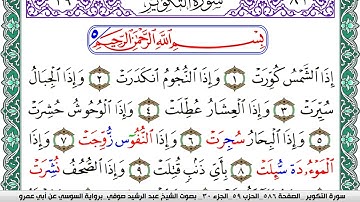 سورة التكوير
بِسْمِ اللَّهِ الرَّحْمَٰنِ الرَّحِيمِ
إِذَا الشَّمْسُ كُوِّرَتْ ١ وَإِذَا النُّجُومُ انكَدَرَتْ ٢ وَإِذَا الْجِبَالُ
سُيِّرَتْ ٣ وَإِذَا الْعِشَارُ عُطِّلَتْ ٤ وَإِذَا الْوُحُوشُ حُشِرَتْ
٥ وَإِذَا الْبِحَارُ سُجِرَتْ ٦ وَإِذَا النُّفُوس زُّوِّجَتْ ٧ وَإِذَا
الْمَوْءُۥدَة سُّئِلَتْ ٨ بِأَيِّ ذَنۢبٍ قُتِلَتْ ٩ وَإِذَا الصُّحُفُ نُشِّرَتْ
سورة التكوير الصفحة ٥٨٦ الحزب ٥٩ الجزء ٣٠ بصوت الشيخ عبد الرشيد صوفي برواية السوسي عن أبي عمرو